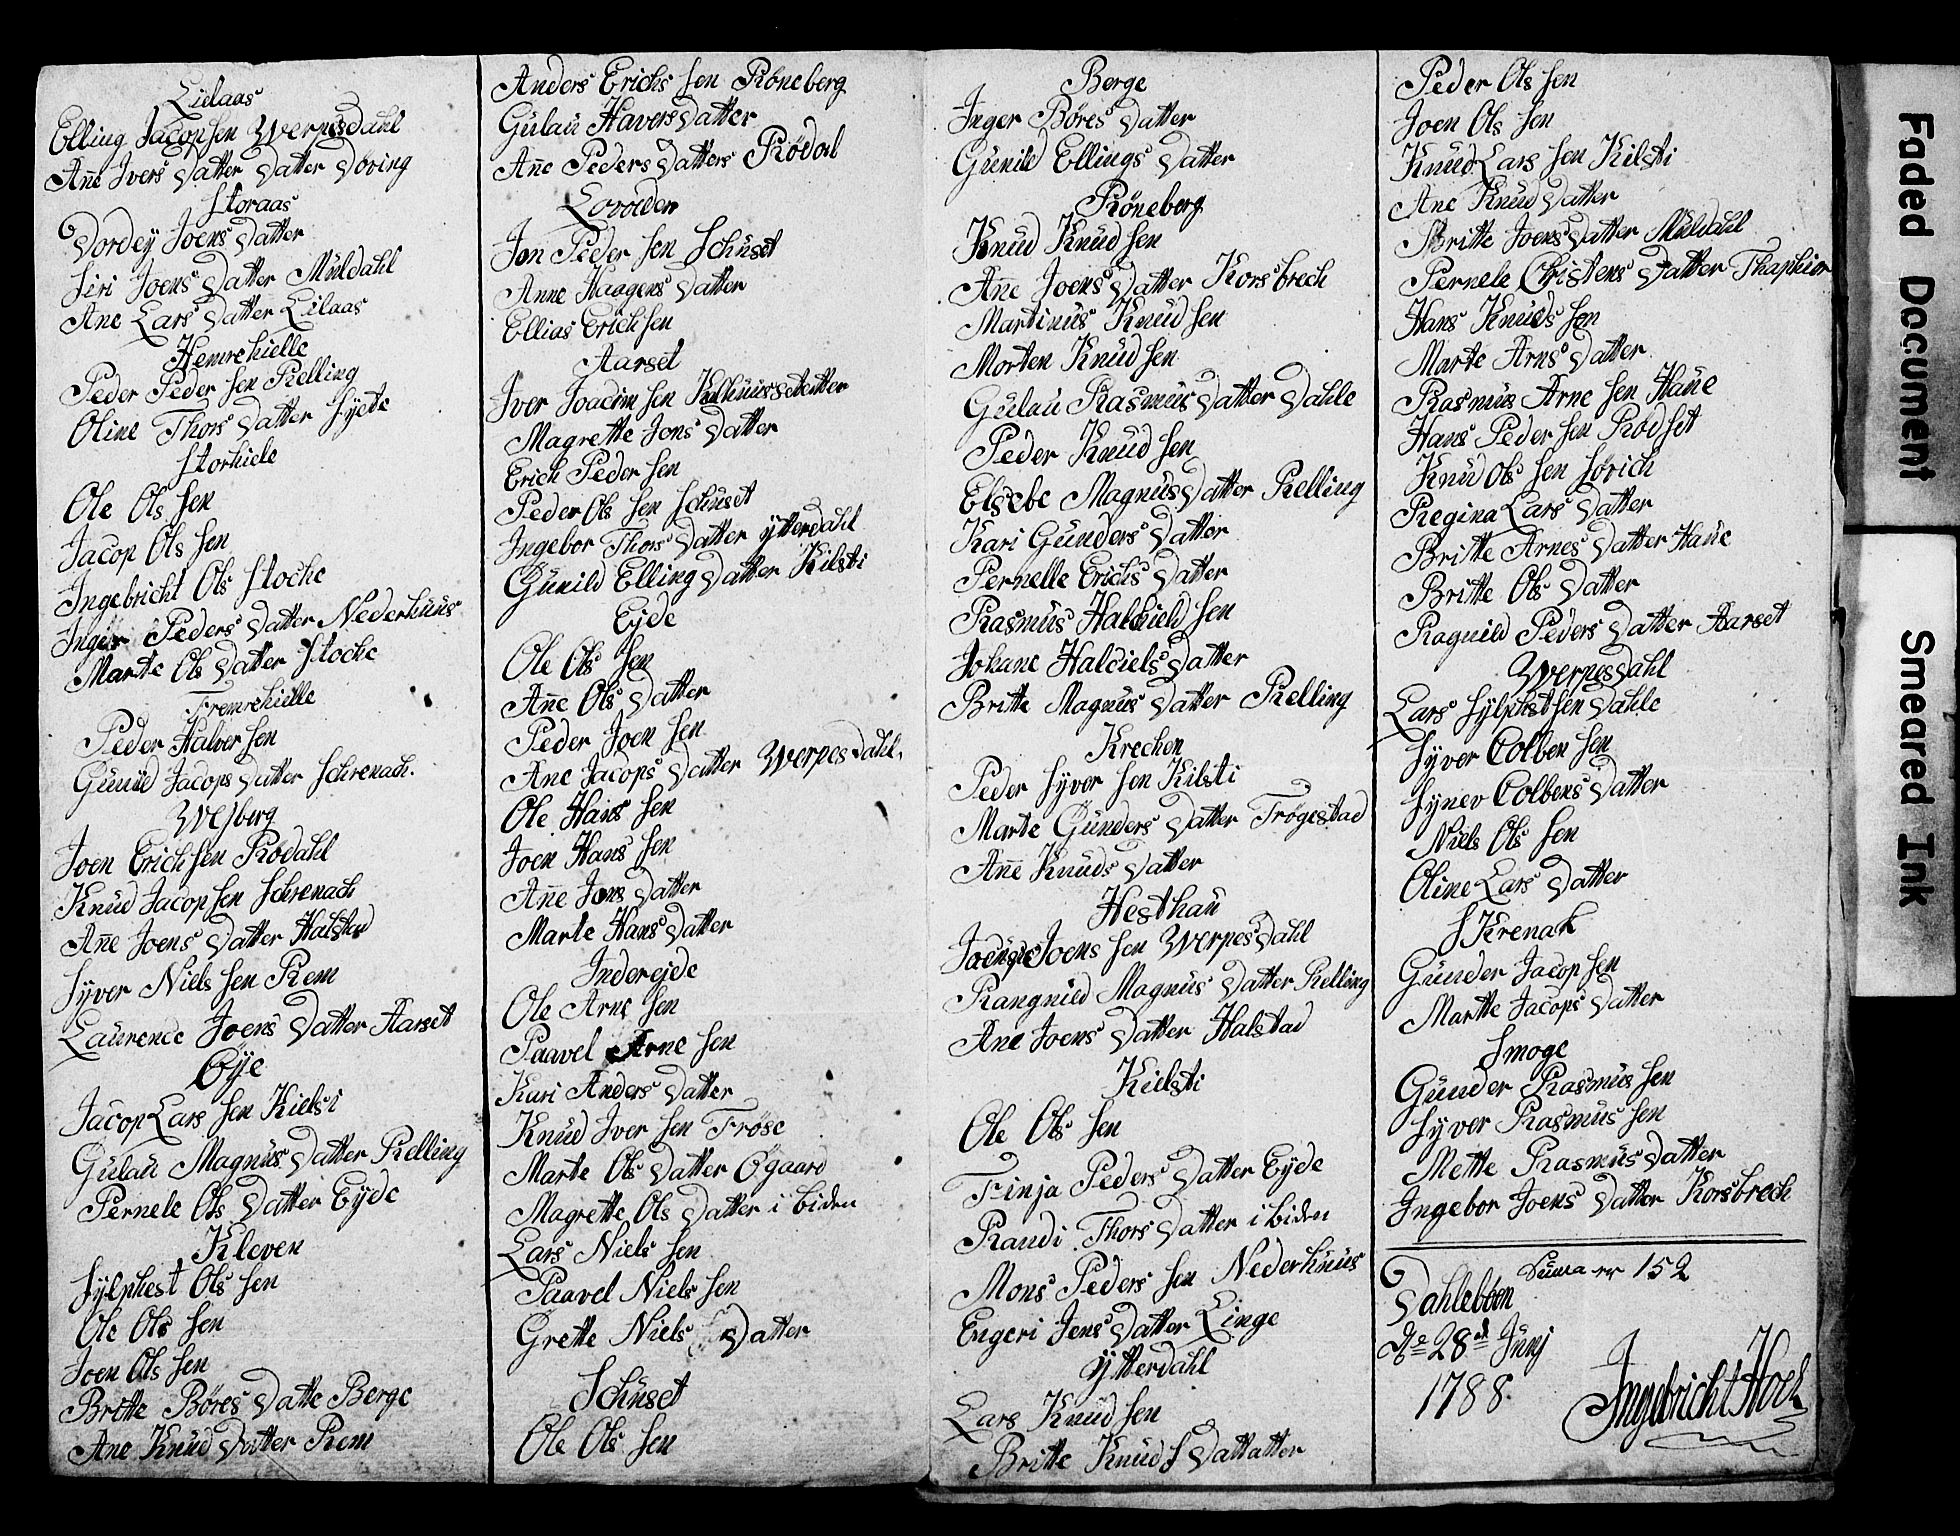 Lielaas
Elling Jacopsen Werpesdahl
Añe Ivers Datter Datter Døving
Storaas
Dordey Joens Datter
Siri Joens Datter Muldahl
Ane Lars Datter Lilaas
Hemrehielle
Peder Peder sen Relling
Oline Thors Datter Syete
Storhiele
Ole Ols sen
Jacop Ols sen
Ingebricht Ols Stoche
Inger Peders Datter Nederhuus
Marte Ols Datter Stoche
Fremrehielle
Peder Halversen
Gunild Jacops Datter Schrenach.
Wesberg
Joen Erichsen Rodahl
Knud Jacopsen Schrenach
Añe Joens Datter Halstad
Syver Niels sen Rem
Laurence Joens Datter Aarset
Øÿe
Jacop Lars sen Kielsti
Gulau Magnus Datter Relling
Pernele Ols Datter Eyde
Kleven
Sylphest Ols sen
Ole Ols sen
Joen Ols sen
Britte Børes Datte Berge
Ane Knud Datter Rem
Anders Erichs sen Røneberg
Gulau Havers Datter
Añe Peders Datters Rødal
Lovolden
Jon Peder sen Schuset
Anne Haagens Datter
Ellias Erichsen
Aarset
Iver Joacim sen
Magrette Jons Datter
Erich Peder sen
Peder Ols sen Schuset
Ingebor Thors Datter ytterdahl
Gunild Elling Datter Kilsti
Eyde
Ole Ols sen
Añe Ols Datter
Peder Joen sen
Ane Jacops Datter Werpesdahl.
Ole Hans sen
Joen Hans sen
Añe Jons Datter
Marte Hans Datter
Inderejde
Ole Arne sen
Paavel Arne sen
Kari Anders Datter
Knud Iver sen Frøse
Marte Ols Datter Øgaard
Magrette Ols Datter i biden
Lars Niels sen
Paavel Niels sen
Grette Niels Datter
Schuset
Ole Ols sen
Berge
Inger Børes Datter
Gunild Ellings Datter
Røneberg
Knud Knud sen
Añe Joens Datter Korsbrech
Martinus Knud sen
Morten Knud sen
Gulau Rasmus Datter Dahle
Peder Knud sen
Elsebe Magnus Datter Relling
Kari Gunders Datter
Pernelle Erichs Datter
Rasmus Haldield sen
Johane Haldiels Datter
Britte Magnus Datter Relling
Krechen
Peder Syver sen Kilsti
Marte Gunders Datter Trøgestad
Añe Knuds Datter
Hesthau
Joens sen Werpesdahl
Rangnild Magnus Datter Relling
Ane Joens Datter Halstad
Kielsti
Ole Ols sen
Finja Peders Datter Eyde
Randi Thors Datter i biden
Mons Peders sen Nederhuus
Engeri Jens Datter Linge
ytterdahl
Lars Knud sen
Britte Knud S Dattatter
Peder Ols sen
Joen Ols sen
Knud Lars sen Kilsti
Ane Knud Datter
Britte Joens Datter Muldahl
Pernele Christens Datter Thaphior
Hans Knuds søn
Marte Arns Datter
Rasmus Arne sen Haue
Hans Peder sen Rødset
Knu Ols sen Sørich
Regina Lars Datter
Britte Arnes Datter Haue
Britte Ols Datter
Ragnild Peders Datter Aarset
Werpesdahl
Lars Sylphest sen Dahle
Syver Colben sen
Synev Colbens Datter
Niels Ols sen
Oline Lars Datter
SKrenak
Gunder Jacop sen
Martte Jacops Datter
Smoge
Gunder Rasmus sen
Syver Rasmus sen
Mette Rasmus Datter
Ingebor Joens Datter Korsbrech
Suma er 152
Dahleboen
28d Junj
1788.
Ingebricht Hoel
Faded Document
Smeared Ink